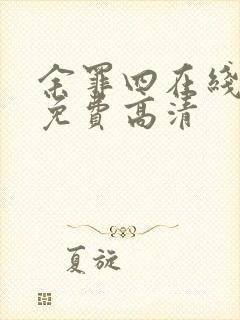 余罪四在线
免费高清
夏旋